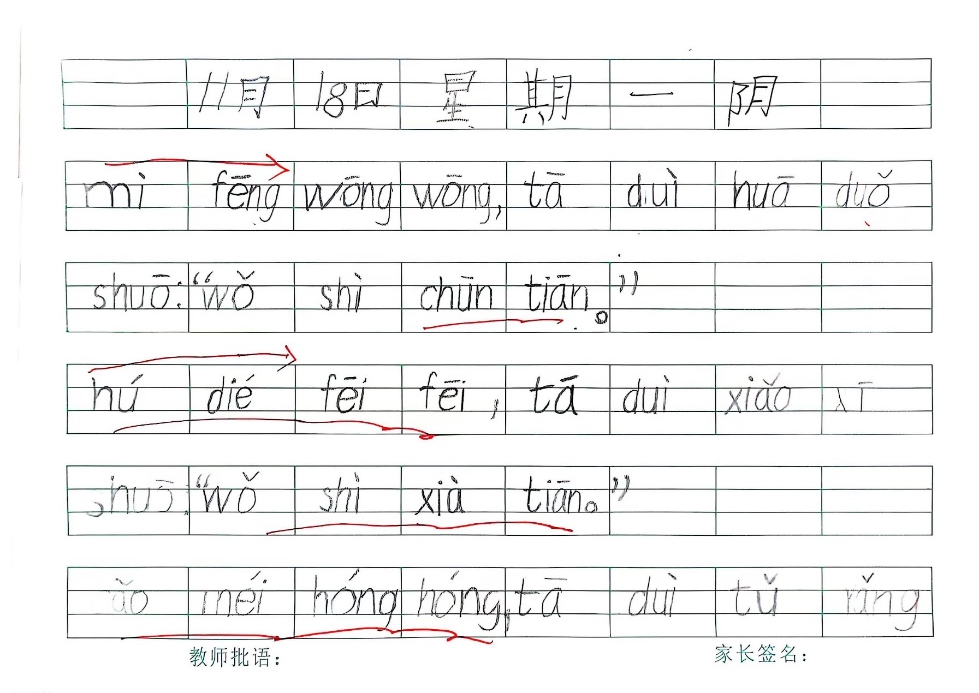 11月 18日 星 期 一 阴
mì fēng wōng wōng, tā duì huā duǒ
shuō: “wǒ shì chūn tiān。”
hú dié fēi fēi, tā duì xiǎo xī
shuō: “wǒ shì xià tiān。”
ǎo méi hóng hóng, tā duì tǔ rǎng
教师批语： 家长签名：